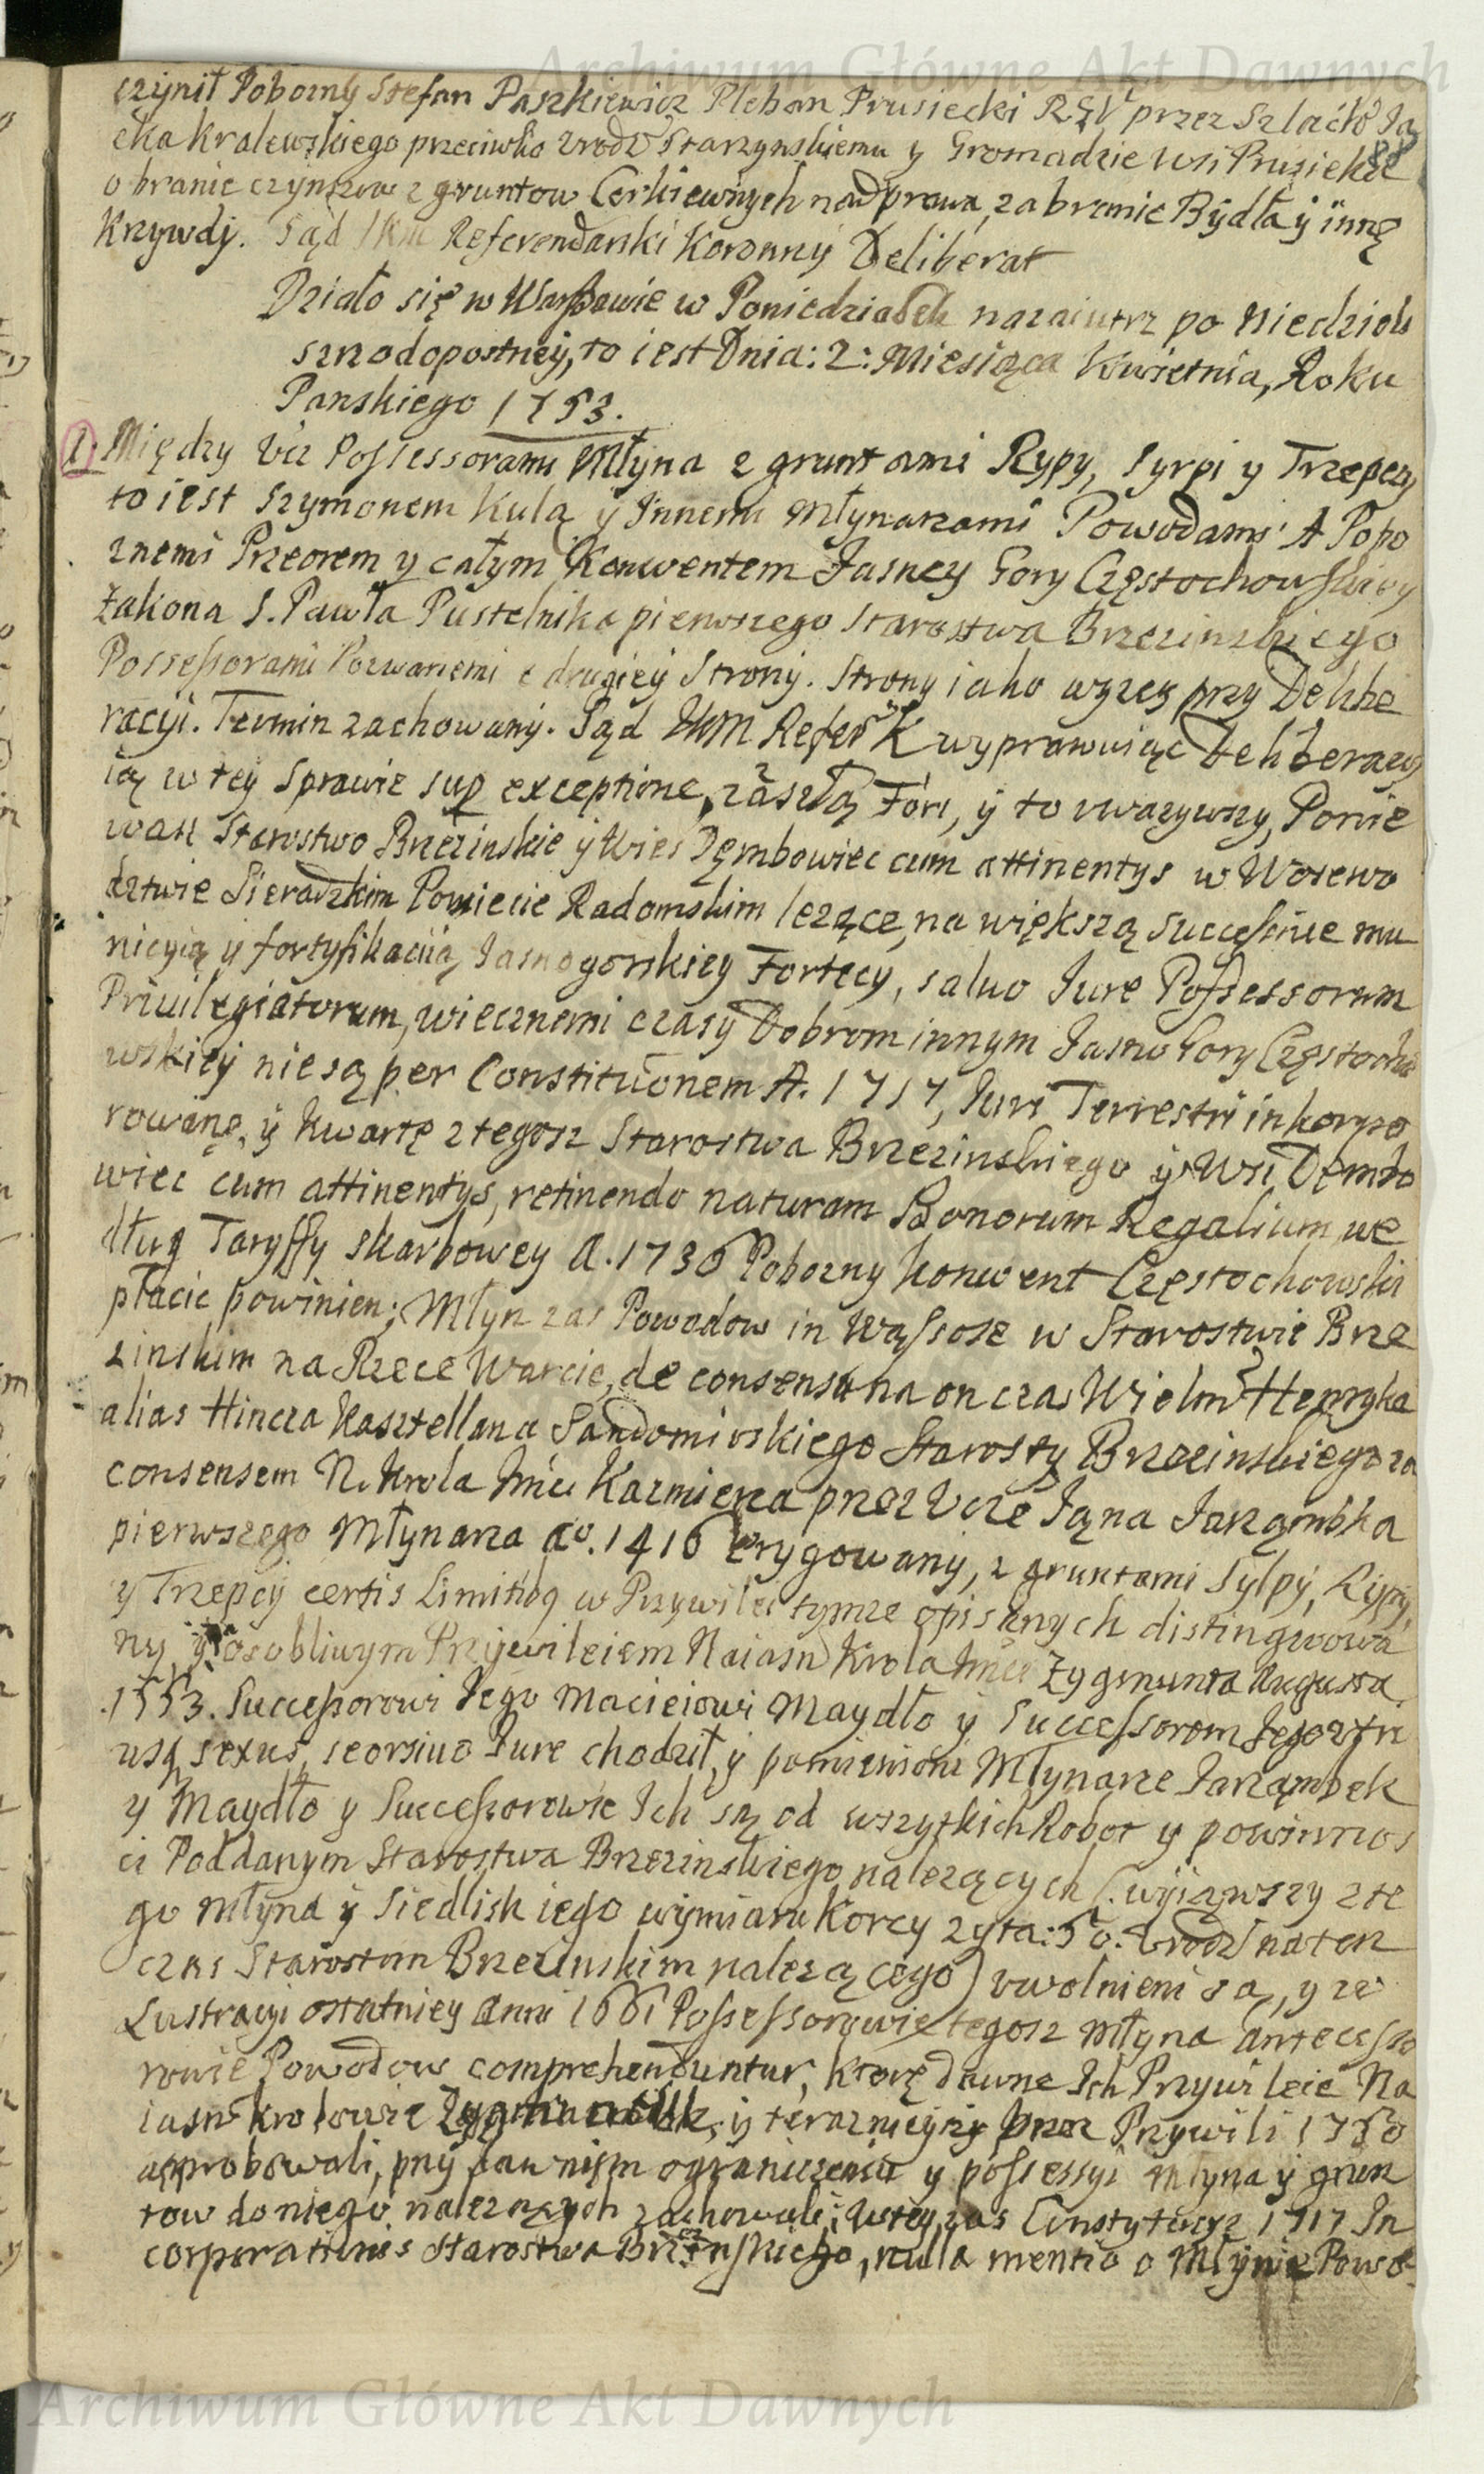 Archiwum Główne Akt Dawnych
czynił Pobozny Stefan Paszkiewicz Pleban Prusiecki RGV przez Szlachť Ja
cka Kralewskiego przeciwko Vrodz Starzynskiemu y Gromadzie wsi Prusieka
88
o branie czynszow z gruntow Cerkiewnych nad prawa, zabranie Bydła y innę
Krzywdy. Sąd JKM Referendarski Koronny Deliberat
Działo się w Warszawie w Poniedziałek nazaiutrz po Niedzieli
szrodopostney, to iest Dnia: 2: Miesiąca Kwietnia, Roku
Panskiego 1753.
1. Między Vcz Possessorami Młyna z gruntami Rypy, Syrpi y Trzepczy
to iest Szymonem Kulą y Innemi Młynarzami Powodami A Pobo
znemi Przeorem y całym Konwentem Jasney Gory Częstochowskiey
Zakona S. Pawła Pustelnika pierwszego Starostwa Brzezinskiego
Possessorami Pozwanemi z drugiey Strony. Strony iako wyzey przy Delibe
racyi. Termin zachowany. Sąd JKM Refer K wyprawuiąc Deliberacy
ią w tey Sprawie sup exceptione, zaszłą Fori, y to uwazywszy, Ponie
waz Starostwo Brzezinskie y Wies Dęmbowiec cum attinentys w Woiewo
dztwie Sieradzkim Powiecie Radomskim lezące, na większą successive mu
nicyią y fortyfikacyią Jasnogorskiey Fortecy, salvo Jure Possessorum
Privilegiatorum, wiecznemi czasy Dobrom innym Jasno Gory Częstocho
wskiey nie są per Constitutionem A. 1717, Juri Terrestri inkorpo
rowanę, y kwartę z tegosz Starostwa Brzezinskiego y Wsi Dęmbo
wiec cum attinentys, retinendo naturam Bonorum Regalium, we
dług Taryffy skarbowey A. 1736 Pobozny Konwent Częstochowski
płacic powinien; Młyn zas Powodow in Wąssosz w Starostwie Brze
zinskim na Rzece Warcie, de consensu na on czas Wielm Henryka
alias Hincza Kasztellana Sandomirskiego Starosty Brzezinskiego za
consensem N. Krola Jmci Kazmierza przez Vcze Jana Jarząmbka
pierwszego Młynarza Ao. 1416 erygowany, z gruntami Sylpy, Rypy,
y Trzepcy certis Limitibq w Przywileiu tymze opisanych distingwowa
ny, y osobliwym Przywileiem Naiasn Krola Jmci Zygmunta Augusta
1553. Successorowi Jego Macieiowi Maydło y Successorom Jego utri
usq sexus, seorsivo Jure chodził, y pomienioni Młynarze Jarząmbek
y Maydło y Successorowie Ich są od wszytkich Robot y powinnos
ci Poddanym Starostwa Brzezinskiego nalezących (wyiąwszy z te
go Młyna y Siedlisk iego wymiaru Korcy zyta: 50. Vrodz na ten
czas Starostom Brzezinskim nalezącego) uwolnieni są, y ze
Lustracyi ostatniey Anni 1661 Possessorowie tegosz Młyna Antecesso
rowie Powodow comprehenduntur, ktorę dawne Ich Przywileie Na
iasn Krolowie y teraznieyszy przez Przywili 1750
approbowali, przy dawnym ograniczeniu y possessyi Młyna y grun
tow do niego nalezących zachowali; w tey zas Constytucyi 1717 In
corporationis Starostwa Brzezinskiego, nulla mentio o Młynie Powo
Archiwum Główne Akt Dawnych